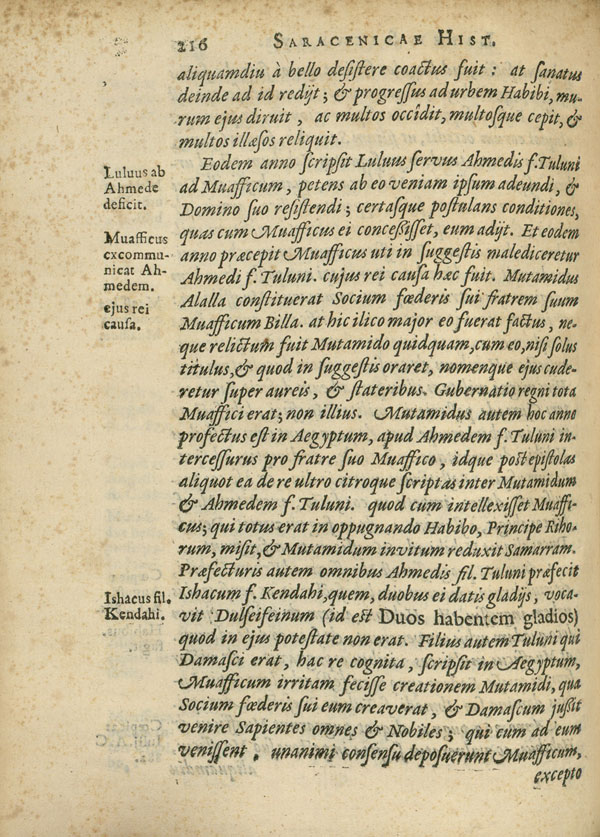 216 SARACENICAE HIST.
aliquamdiu à bello desistere coactus fuit: at sanatus
deinde ad id redijt; & progressus ad urbem Habibi, mu-
rum ejus diruit, ac multos occîdit, multosque cepit, &
multos illæsos reliquit.
Luluus ab
Ahmede
deficit.
Eodem anno scripsit Luluus servus Ahmedis f. Tuluni
ad Muafficum, petens ab eo veniam ipsum adeundi, &
Domino suo resistendi; certasque postulans conditiones,
Muafficus
excommu-
nicat Ah-
medem.
quas cum Muafficus ei concessisset, eum adijt. Et eodem
anno præcepit Muafficus uti in suggestis malediceretur
Ahmedi f. Tuluni. cujus rei causa hæc fuit. Mutamidus
ejus rei
causa.
Alalla constituerat Socium fœderis sui fratrem suum
Muafficum Billa. at hic ilico major eo fuerat factus, ne-
que relictum fuit Mutamido quidquam, cum eo, nisi solus
titulus, & quod in suggestis oraret, nomenque ejus cude-
retur super aureis, & stateribus. Gubernatio regni tota
Muaffici erat; non illius. Mutamidus autem hoc anno
profectus est in Aegyptum, apud Ahmedem f. Tuluni in-
tercessurus pro fratre suo Muaffico, idque post epistolas
aliquot ea de re ultro citroque scriptas inter Mutamidum
& Ahmedem f. Tuluni. quod cum intellexisset Muaffi-
cus; qui totus erat in oppugnando Habibo, Principe Riho-
rum, misit, & Mutamidum invitum reduxit Samarram.
Præfecturis autem omnibus Ahmedis fil. Tuluni præfecit
Ishacus fil.
Kendahi.
Ishacum f. Kendahi, quem, duobus ei datis gladijs, voca-
vit Dulseifeinum (id est Duos habentem gladios)
quod in ejus potestate non erat. Filius autem Tuluni qui
Damasci erat, hac re cognita, scripsit in Aegyptum,
Muafficum irritam fecisse creationem Mutamidi, qua
Socium fœderis sui eum creaverat, & Damascum jussit
venire Sapientes omnes & Nobiles; qui cum ad eum
venissent, unanimi consensu deposuerunt Muafficum,
excepto